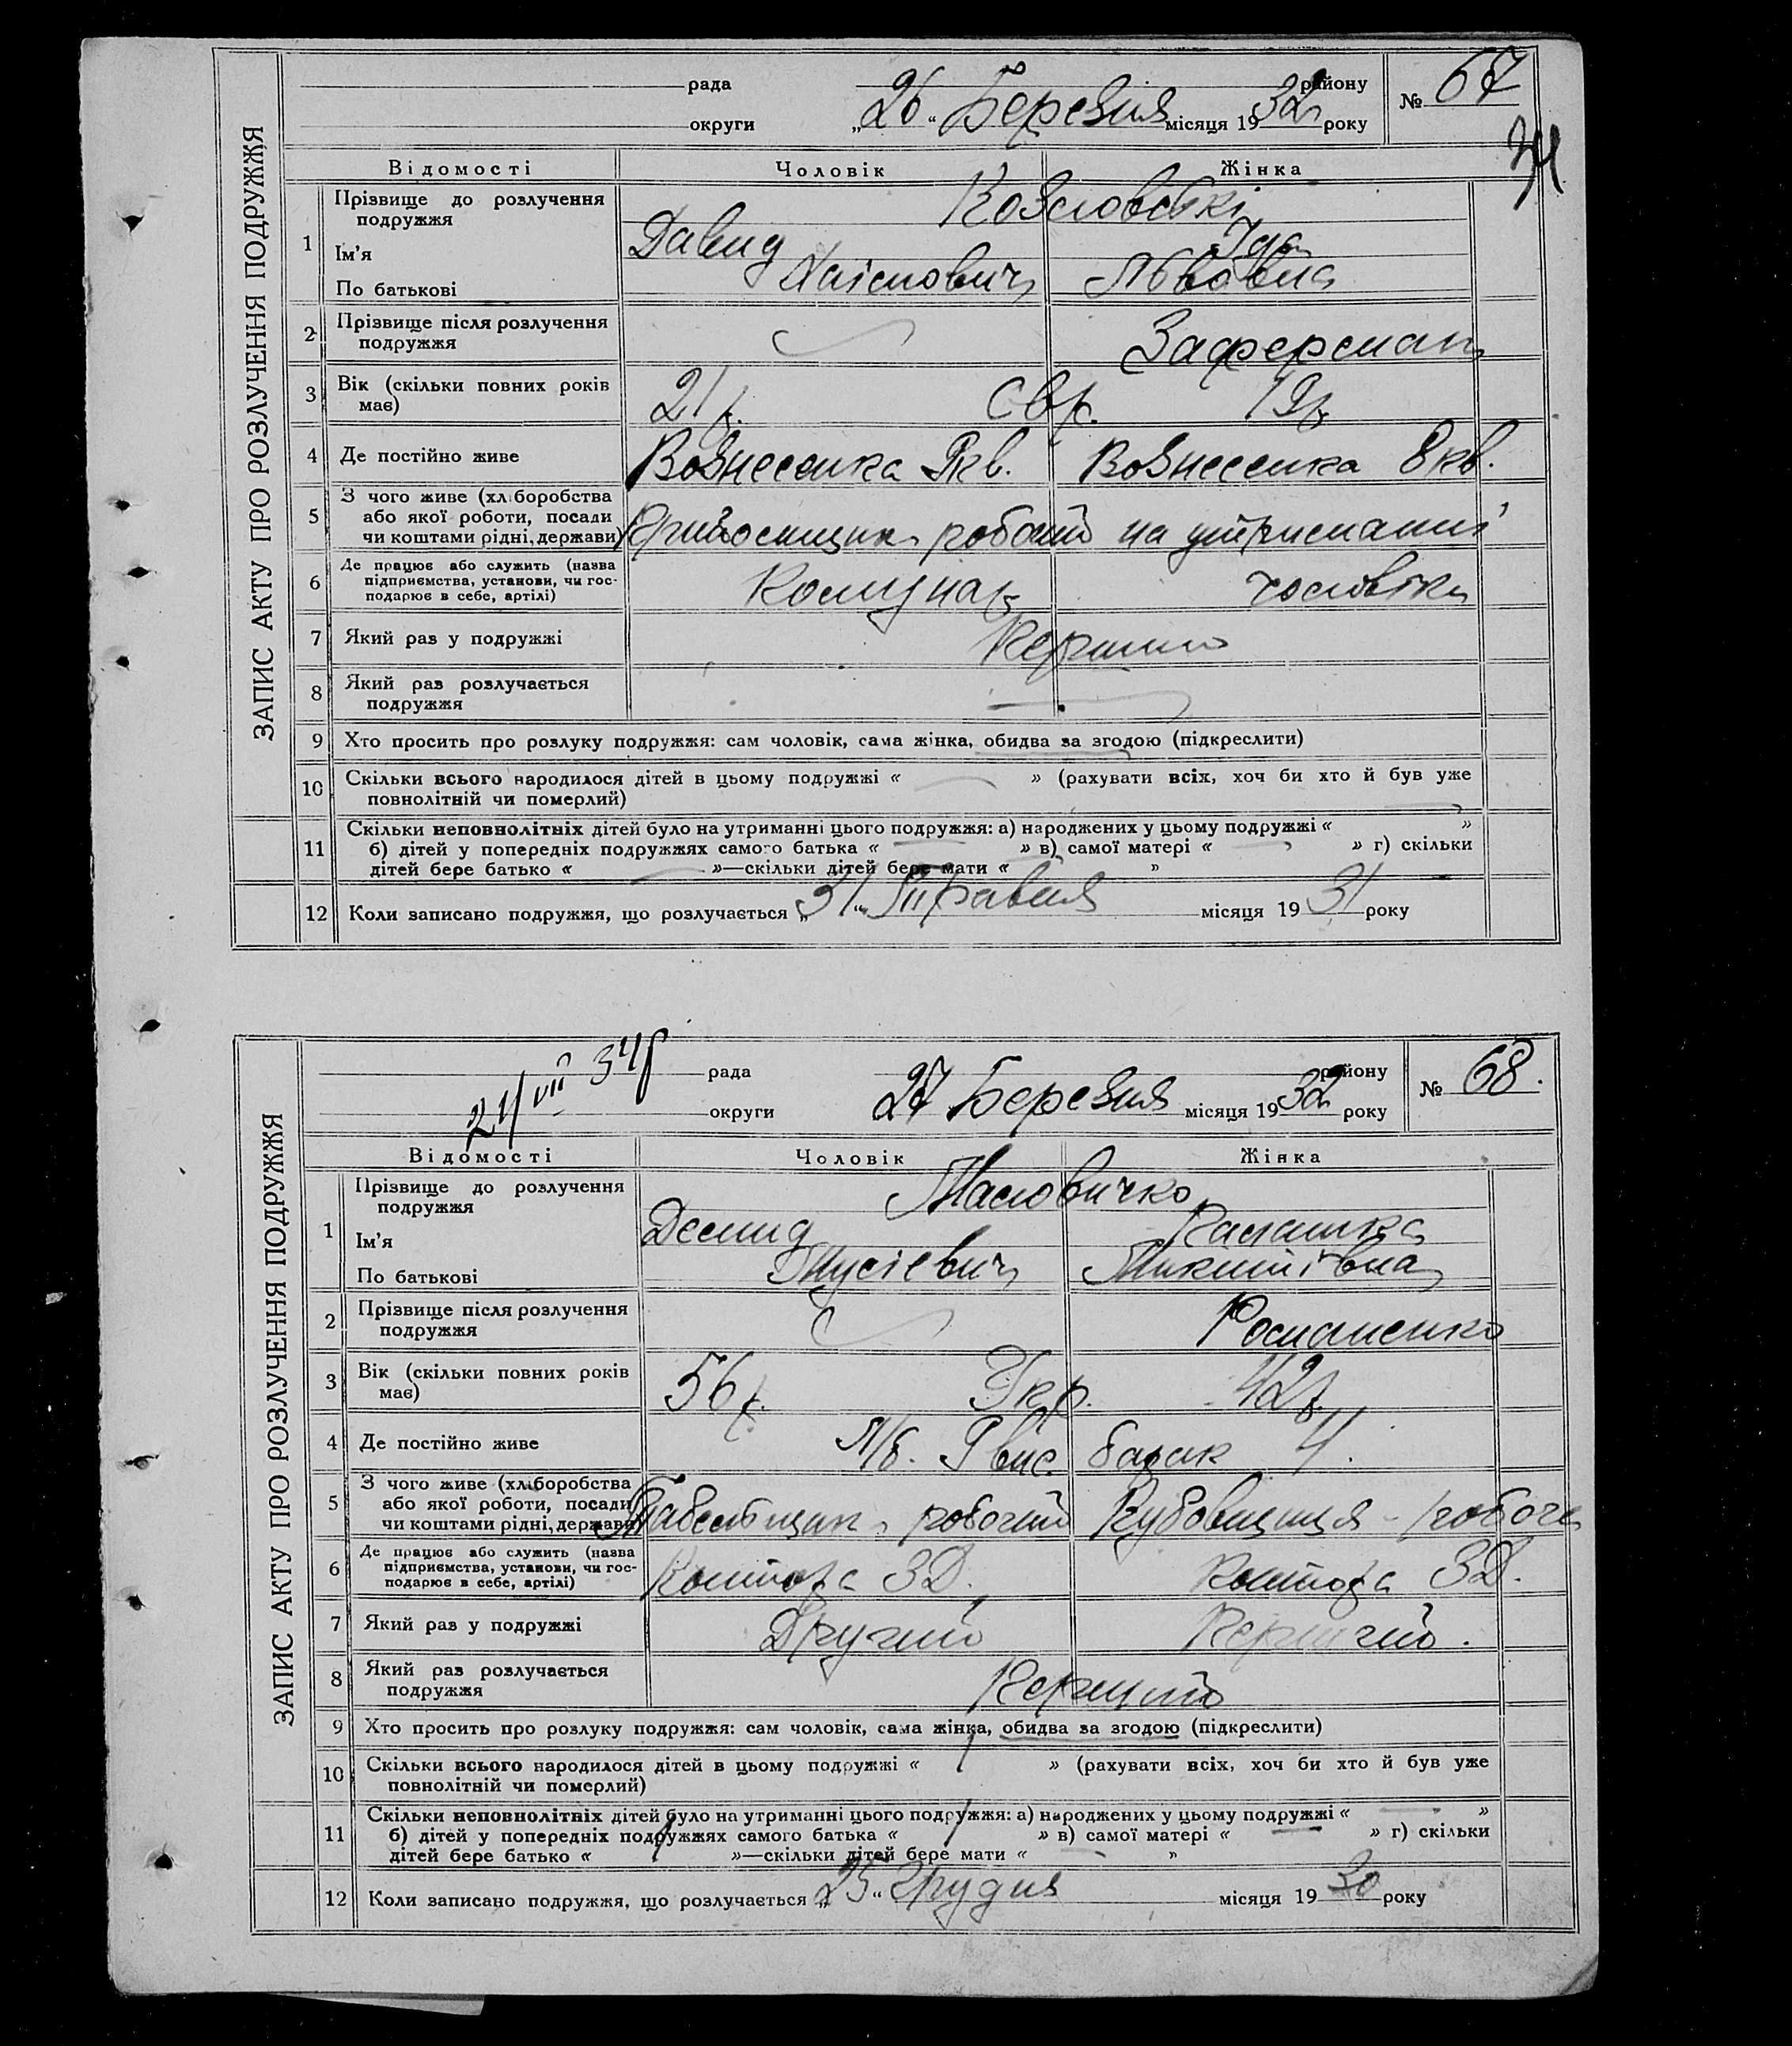 ЗАПИС АКТУ ПРО РОЗЛУЧЕННЯ ПОДРУЖЖЯ
рада району
округи „26“ Березня місяця 1932 року
№ 67
Відомості Чоловік Жінка
1 Прізвище до розлучення подружжя Козловські
Ім'я Давид Іда
По батькові Хаїмович Львовна
2 Прізвище після розлучення подружжя Заферман
3 Вік (скільки повних років має) 21 р. Євр. 19 р.
4 Де постійно живе Вознесенка кв. Вознесенка 8 кв.
5 З чого живе (хліборобства або якої роботи, посади чи коштами рідні, держави) робочий на утриманні
6 Де працює або служить (назва підприємства, установи, чи господарює в себе, артілі) Комунар чоловіка
7 Який раз у подружжі Перший
8 Який раз розлучається подружжя
9 Хто просить про розлуку подружжя: сам чоловік, сама жінка, обидва за згодою (підкреслити)
10 Скільки всього народилося дітей в цьому подружжі « — » (рахувати всіх, хоч би хто й був уже
повнолітній чи померлий)
11 Скільки неповнолітніх дітей було на утриманні цього подружжя: а) народжених у цьому подружжі « — »
б) дітей у попередніх подружжях самого батька « — » в) самої матері « — » г) скільки
дітей бере батько « — »—скільки дітей бере мати « »
12 Коли записано подружжя, що розлучається „31“ Травня місяця 1931 року
ЗАПИС АКТУ ПРО РОЗЛУЧЕННЯ ПОДРУЖЖЯ
рада району
округи 27 Березня місяця 1932 року
№ 68.
Відомості Чоловік Жінка
1 Прізвище до розлучення подружжя Масловичко
Ім'я Демид Палашка
По батькові Мусієвич Микитівна
2 Прізвище після розлучення подружжя Романенко
3 Вік (скільки повних років має) 56 р. Укр. 42 р.
4 Де постійно живе барак 4.
5 З чого живе (хліборобства або якої роботи, посади чи коштами рідні, держави) Табельщик робочий Кубовщиця - робоча
6 Де працює або служить (назва підприємства, установи, чи господарює в себе, артілі) Контора ЗД. Контора ЗД.
7 Який раз у подружжі Другий Перший.
8 Який раз розлучається подружжя Перший
9 Хто просить про розлуку подружжя: сам чоловік, сама жінка, обидва за згодою (підкреслити)
10 Скільки всього народилося дітей в цьому подружжі « 1 » (рахувати всіх, хоч би хто й був уже
повнолітній чи померлий)
11 Скільки неповнолітніх дітей було на утриманні цього подружжя: а) народжених у цьому подружжі « — »
б) дітей у попередніх подружжях самого батька « 1 » в) самої матері « — » г) скільки
дітей бере батько « 1 »—скільки дітей бере мати « — »
12 Коли записано подружжя, що розлучається „25“ Грудня місяця 1930 року